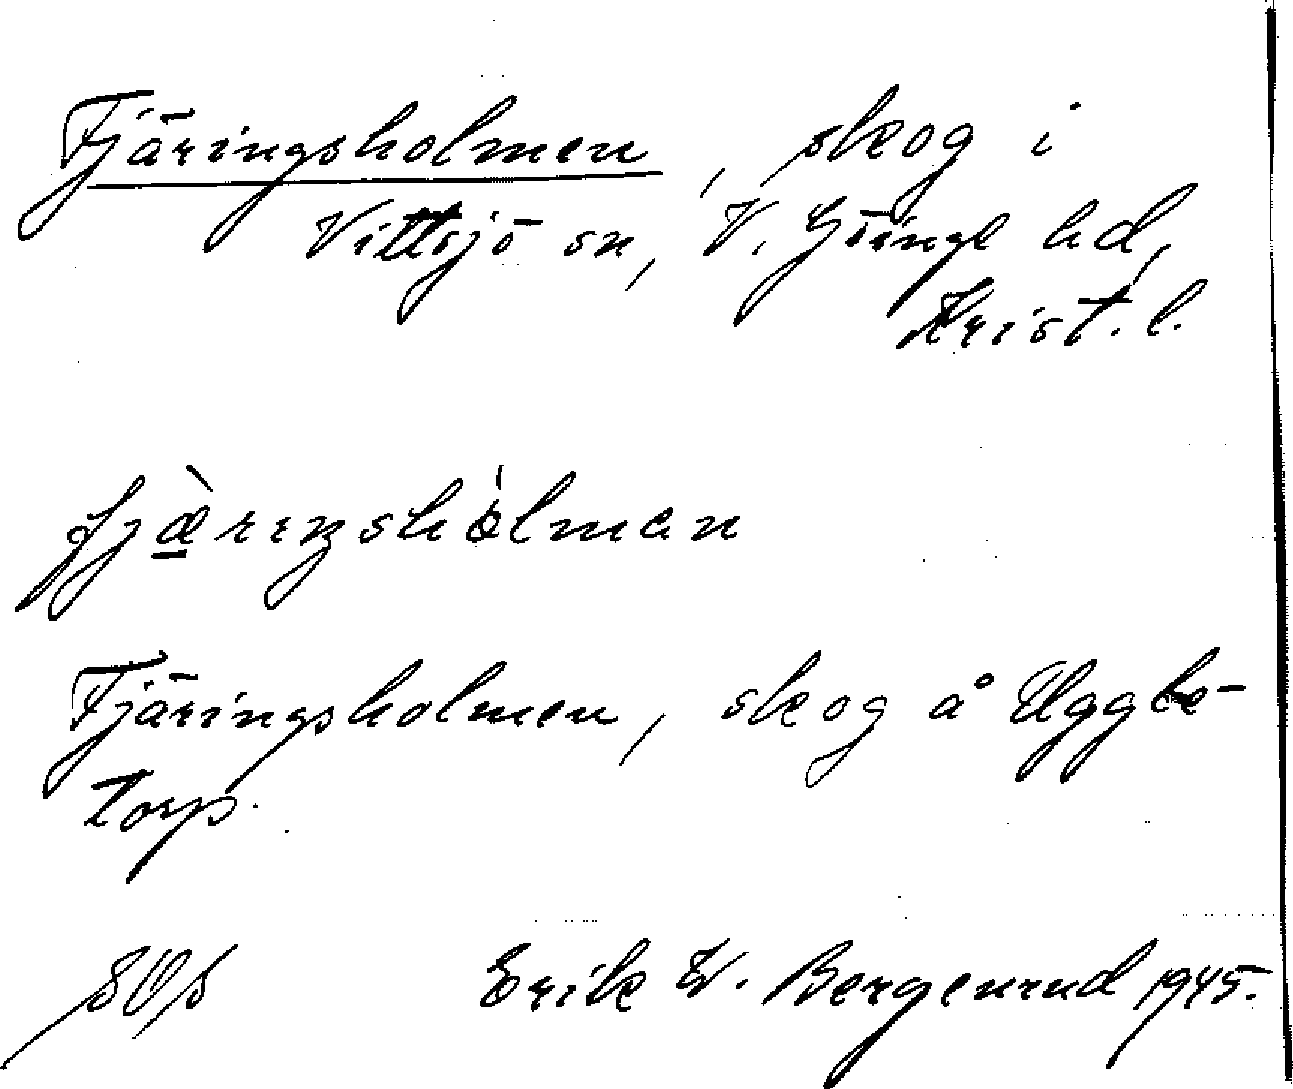 Fjäringsholmen, skog i
Vittsjö sn, V. Göinge hd,
Krist. l.
fjæ̀rɪŋshólman
Fjäringsholmen, skog å Uggle-
torp.
Erik W. Bergenrud 1945.